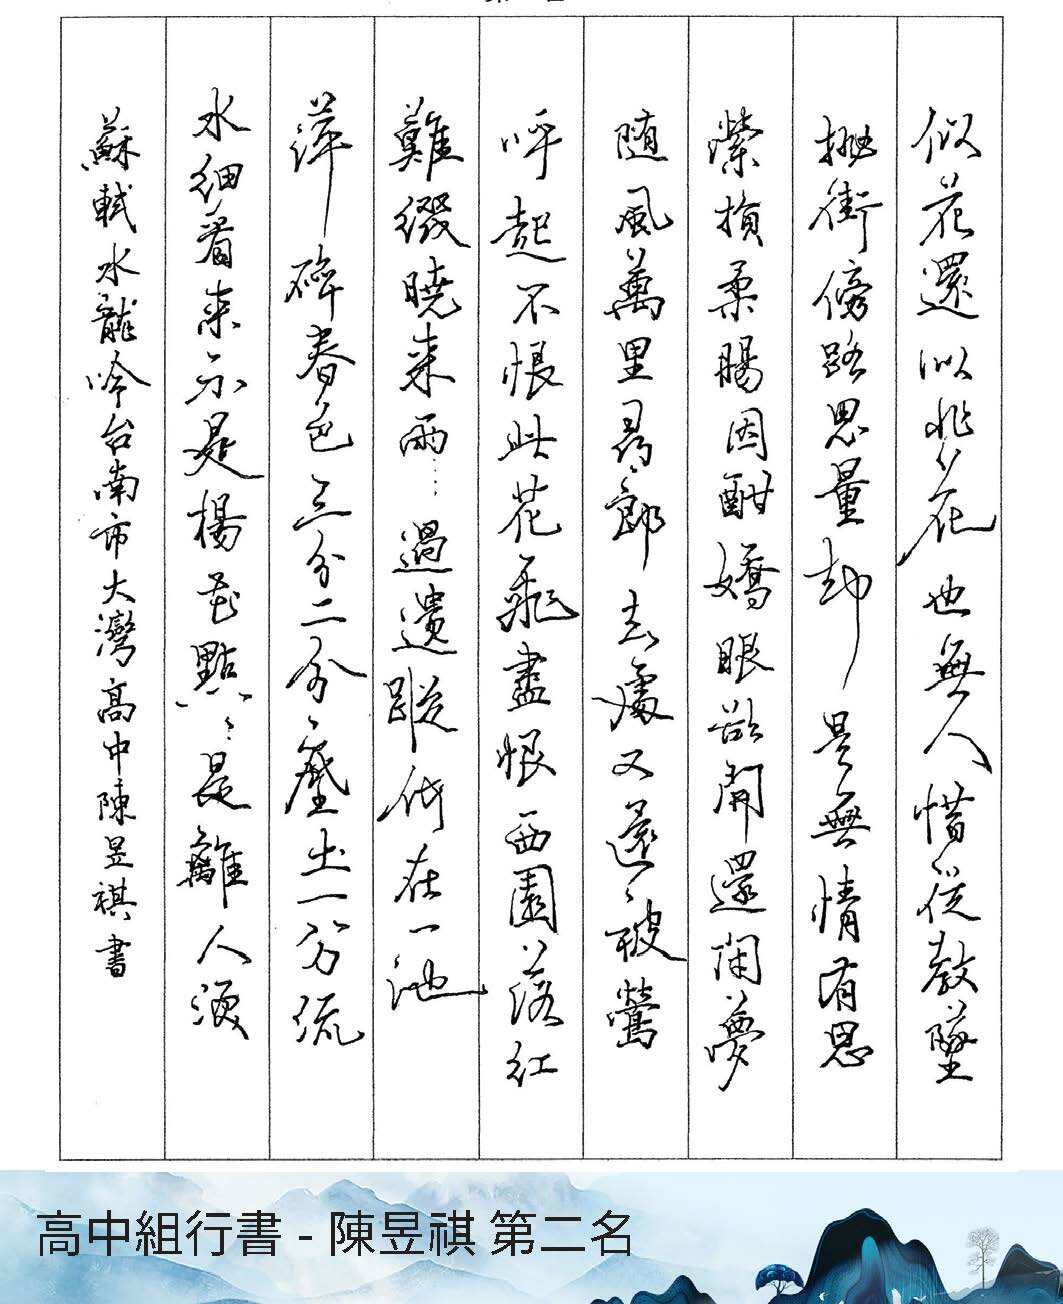 似花還似非花也無人惜從教墜
拋街傍路思量却是無情有思
縈損柔腸困酣嬌眼欲開還閉夢
随風萬里尋郎去處又還被鶯
呼起不恨此花飛盡恨西園落紅
難綴曉来雨⋯過遺蹤何在一池
萍碎春色三分二分塵土一分流
水細看来不是楊花點ミ是離人淚
蘇軾水龍吟台南市大灣高中陳昱祺書
高中組行書 - 陳昱祺 第二名